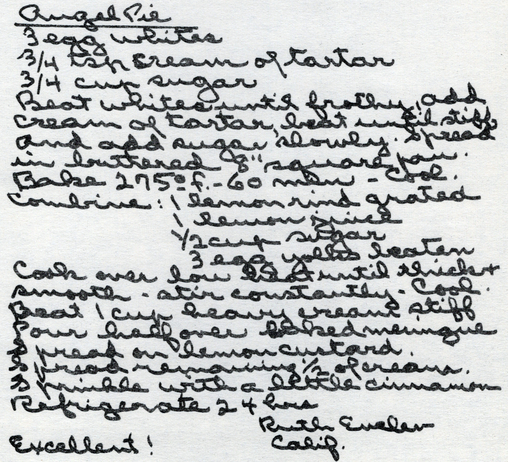 Angel Pie
3 egg whites
3/4 tsp cream of tartar
3/4 cup sugar
Beat whites until frothy, add
cream of tartar, beat until stiff
and add sugar slowly. Spread
in buttered 8" square pan.
Bake 275° f. - 60 min - Cool.
Combine: 1 lemon rind grated
1 lemon juice
1/2 cup sugar
3 egg yolks beaten
Cook over low heat until thick &
smooth - stir constantly - Cool.
Beat 1 cup heavy cream stiff
Pour half over baked meringue
Spread on lemon custard.
Spread remaining 1/2 of cream.
Sprinkle with a little cinnamon
Refrigerate 24 hrs
Ruth
Excellent! Calif.